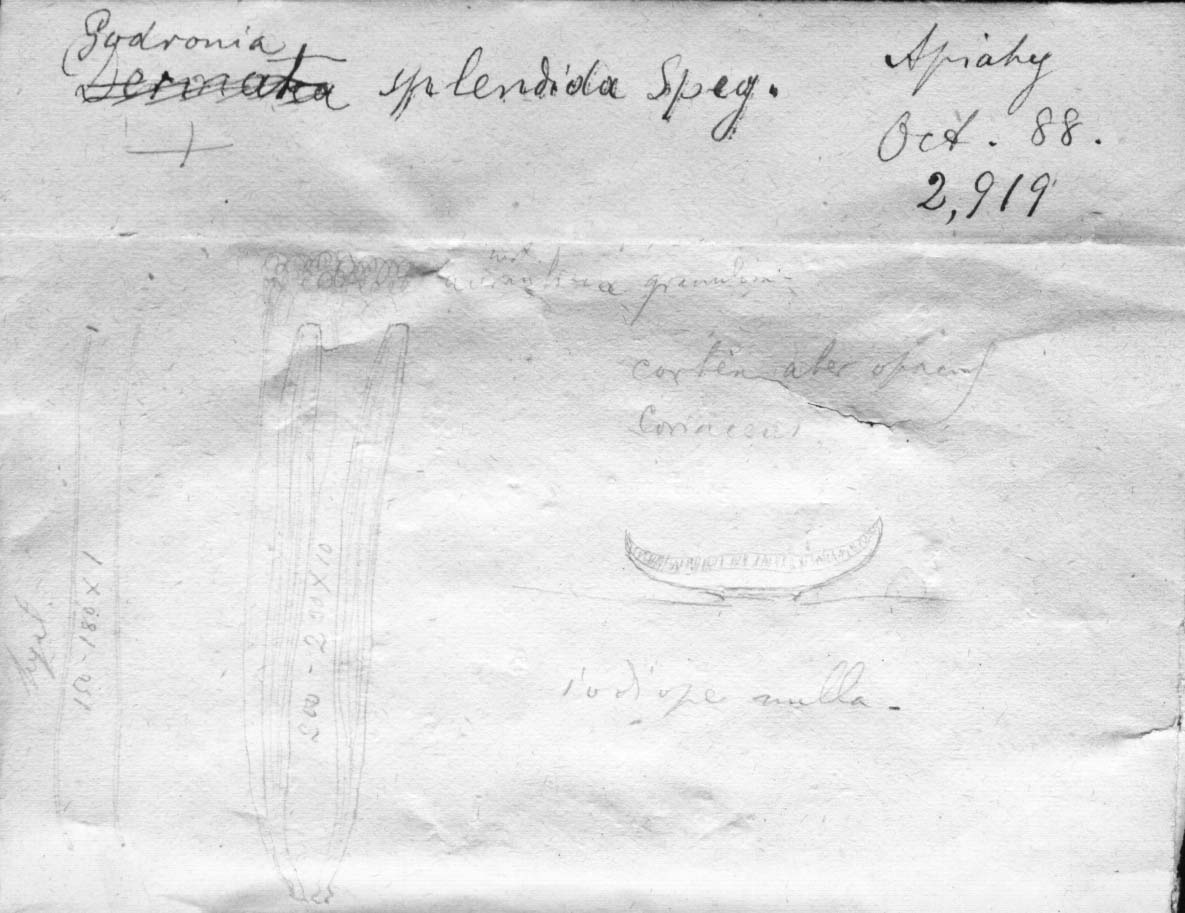 Godronia
Dermatea splendida Speg.
+
Apiahy
Oct. 88.
2,919
granulosa
aber opacus
coriaceus
hyal.
150-180 x 1
200-220 x 10
iodi ope nulla.